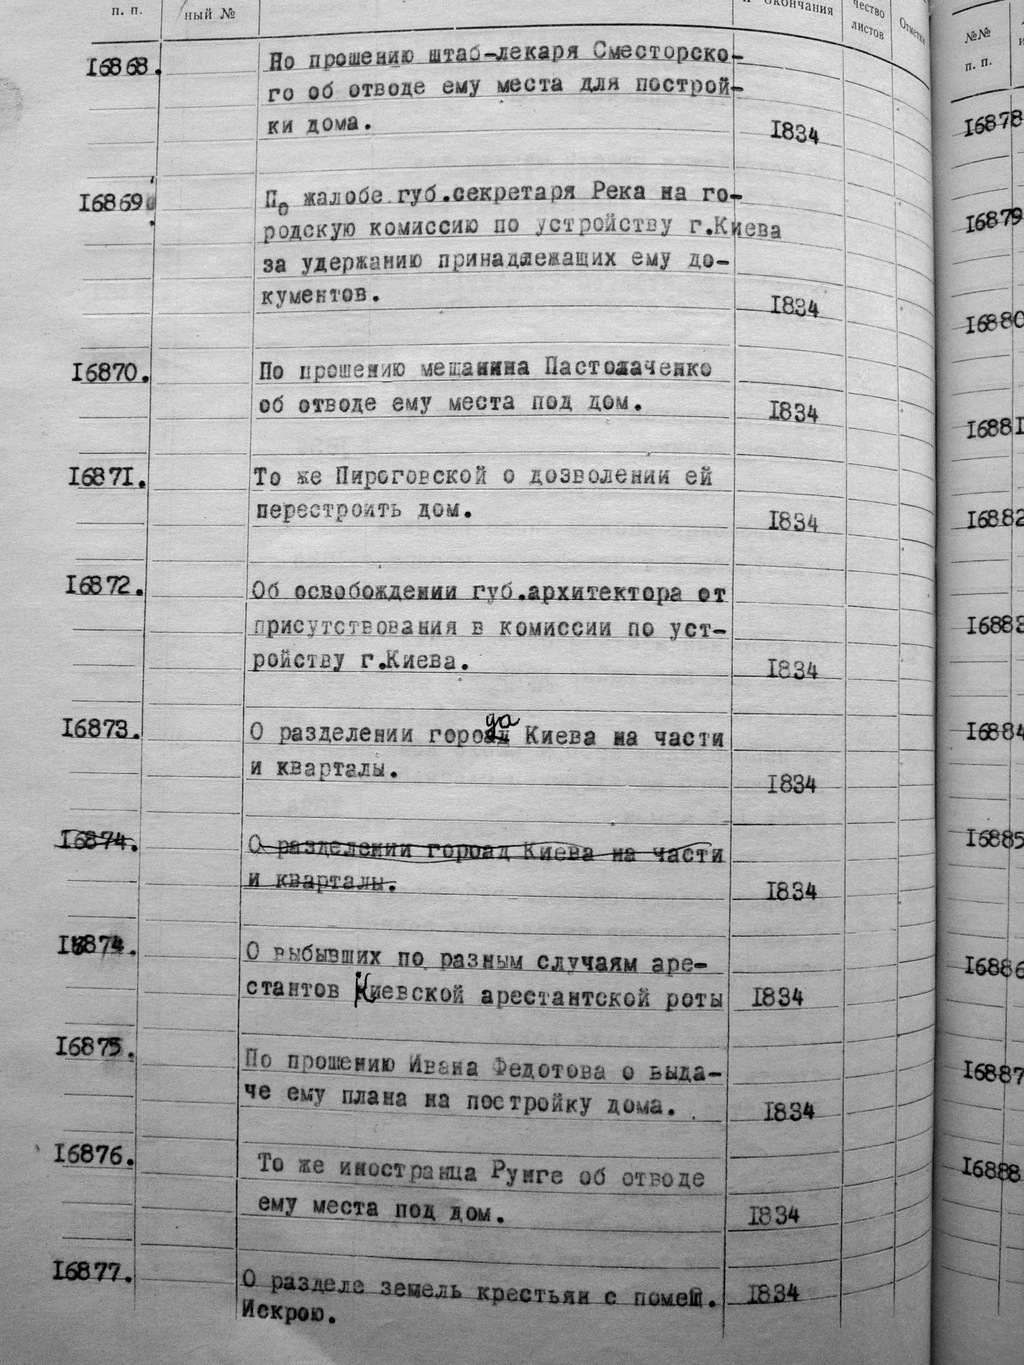 п. п.
ный №
и окончания
чество
листов
Отметка
16868.
Но прошению штаб-лекаря Сместорско-
го об отводе ему места для построй-
ки дома.
1834
16869
По жалобе губ.секретаря Река на го-
родскую комиссию по устройству г.Киева
за удержанию принадлежащих ему до-
кументов.
1834
16870.
По прошению мещанина Пастолаченко
об отводе ему места под дом.
1834
16871.
То же Пироговской о дозволении ей
перестроить дом.
1834
16872.
Об освобождении губ.архитектора от
присутствования в комиссии по уст-
ройству г.Киева.
1834
16873.
да
О разделении гороад Киева на части
и кварталы.
1834
16874.
О разделении гороад Киева на части
и кварталы.
1834
16874.
О выбывших по разным случаям аре-
стантов Киевской арестантской роты
1834
16875.
По прошению Ивана Федотова о выда-
че ему плана на постройку дома.
1834
16876.
То же иностранца Рунге об отводе
ему места под дом.
1834
16877.
О разделе земель крестьян с помещ.
Искрою.
1834
№№
п. п.
16878
16879
16880
16881
16882
16883
16884
16885
16886
16887
16888